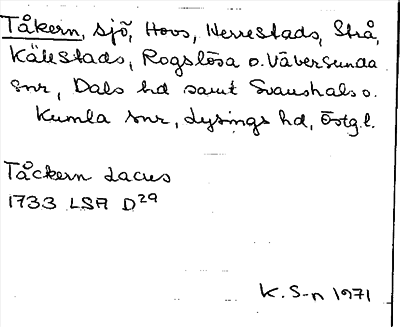 Tåkern, sjö, Hovs, Herrestads, Strå,
Källstads, Rogslösa o. Väversunda
snr, Dals hd samt Svanshals o.
Kumla snr, Lysings hd, Östg.l.
Tåckern Lacus
1733 LSA D29
K. S-n 1971